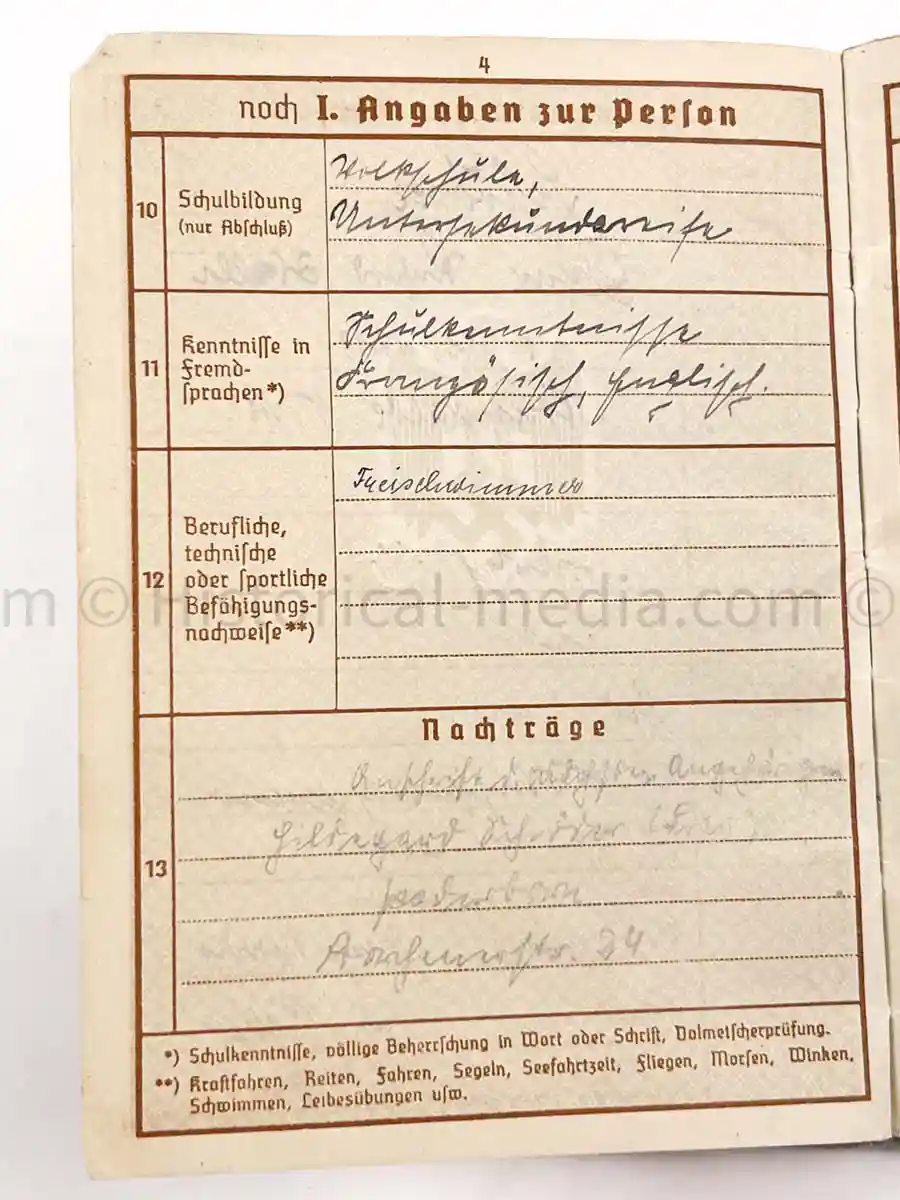 4
noch I. Angaben zur Person
10
Schulbildung
(nur Abschluß)
Volksschule,
Untersekundareife
11
Kenntnisse in
Fremd-
sprachen*)
Schulkenntnisse
Französisch, Englisch.
12
Berufliche,
technische
oder sportliche
Befähigungs-
nachweise**)
Freischwimmer
m © Historical-media.com ©
Nachträge
13
Anschrift d. nächsten Angehörigen
Hildegard Schröder
Paderborn
str. 34
*) Schulkenntnisse, völlige Beherrschung in Wort oder Schrift, Dolmetscherprüfung.
**) Kraftfahren, Reiten, Fahren, Segeln, Seefahrtzeit, Fliegen, Morsen, Winken,
Schwimmen, Leibesübungen usw.